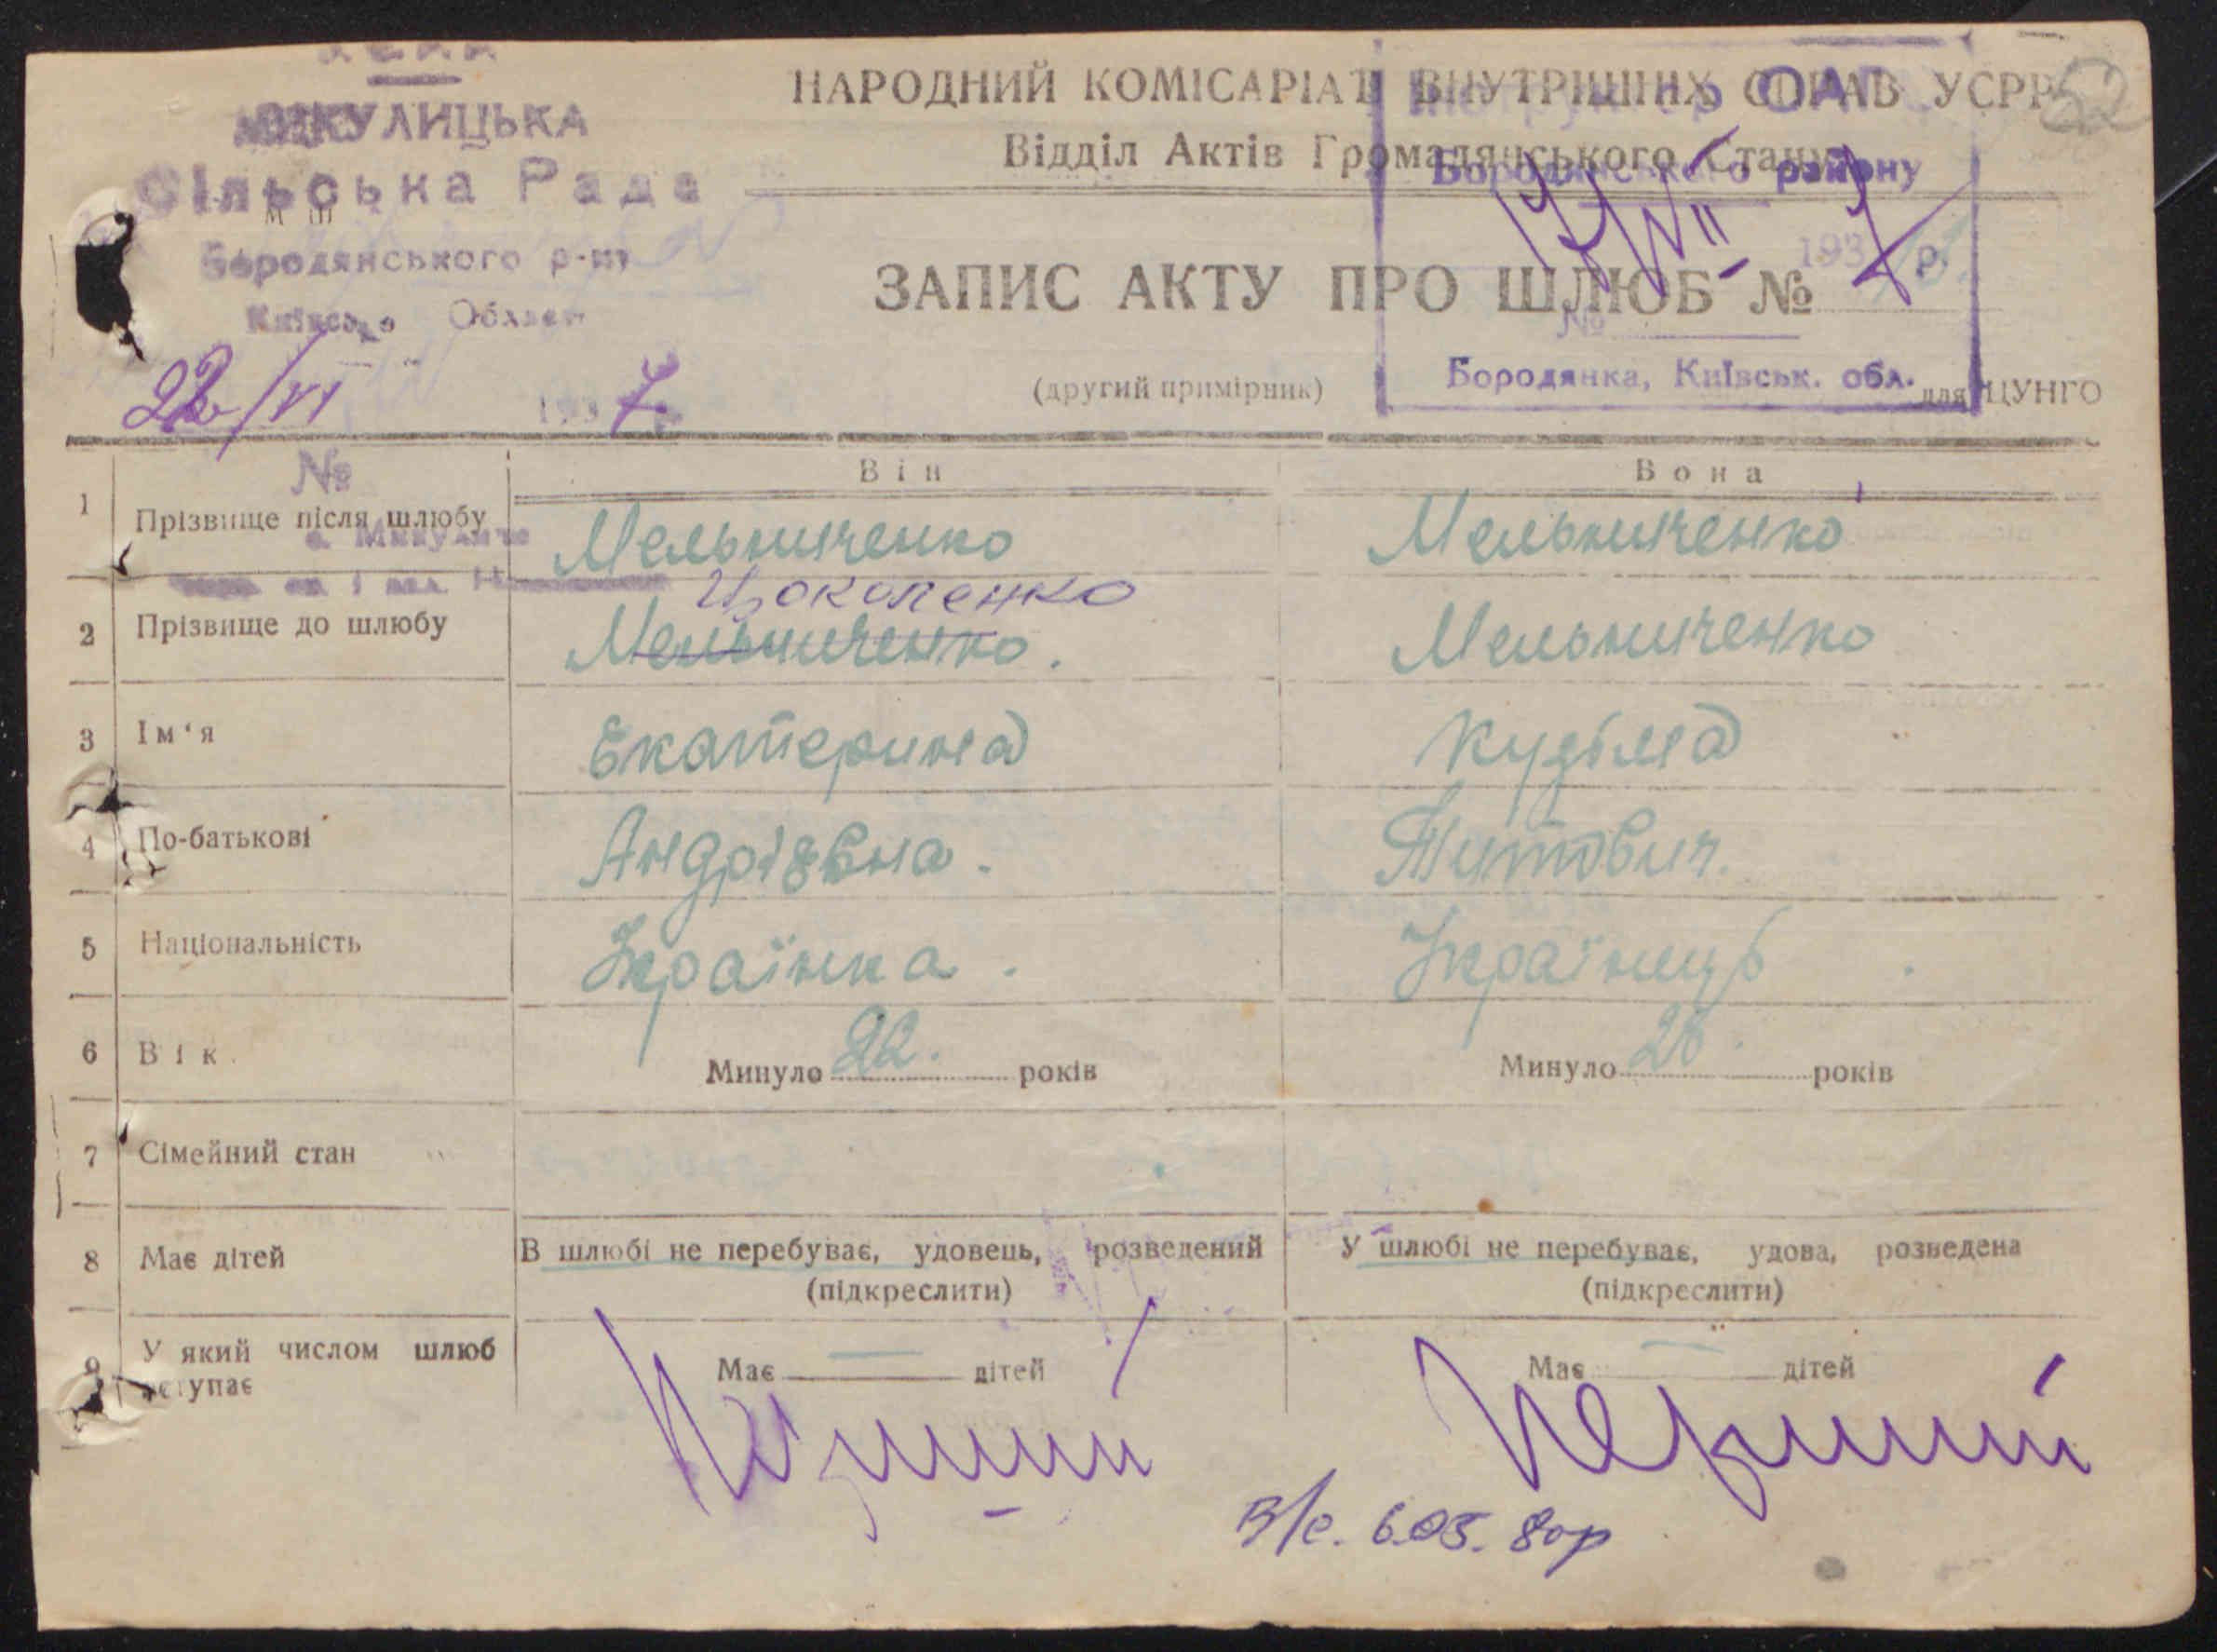 МИКУЛИЦЬКА
Сільська Рада
Бородянського р-ну
Київсько Област
22/VI 1937
№
НАРОДНИЙ КОМІСАРІАТ ВНУТРІШНІХ СПРАВ УСРР
52
Відділ Актів Громадянського Стану
Бородянського району
17/VII 1937 р.
ЗАПИС АКТУ ПРО ШЛЮБ №
№
(другий примірник)
Бородянка, Київськ. обл.
для ЦУНГО
Він
Вона
1 Прізвище після шлюбу Мельниченко Мельниченко
Цоколенко
2 Прізвище до шлюбу Мельниченко. Мельниченко
3 Ім‘я Екатерина Кузіма
4 По-батькові Андріївна. Титович.
5 Національність Українка. Українець.
6 Вік. Минуло 22. років Минуло 26. років
7 Сімейний стан
8 Має дітей В шлюбі не перебуває, удовець, розведений У шлюбі не перебуває, удова, розведена
(підкреслити) (підкреслити)
9 У який числом шлюб вступає
Має — дітей Має — дітей
Перший Перший
В/с. 6.05. 80р